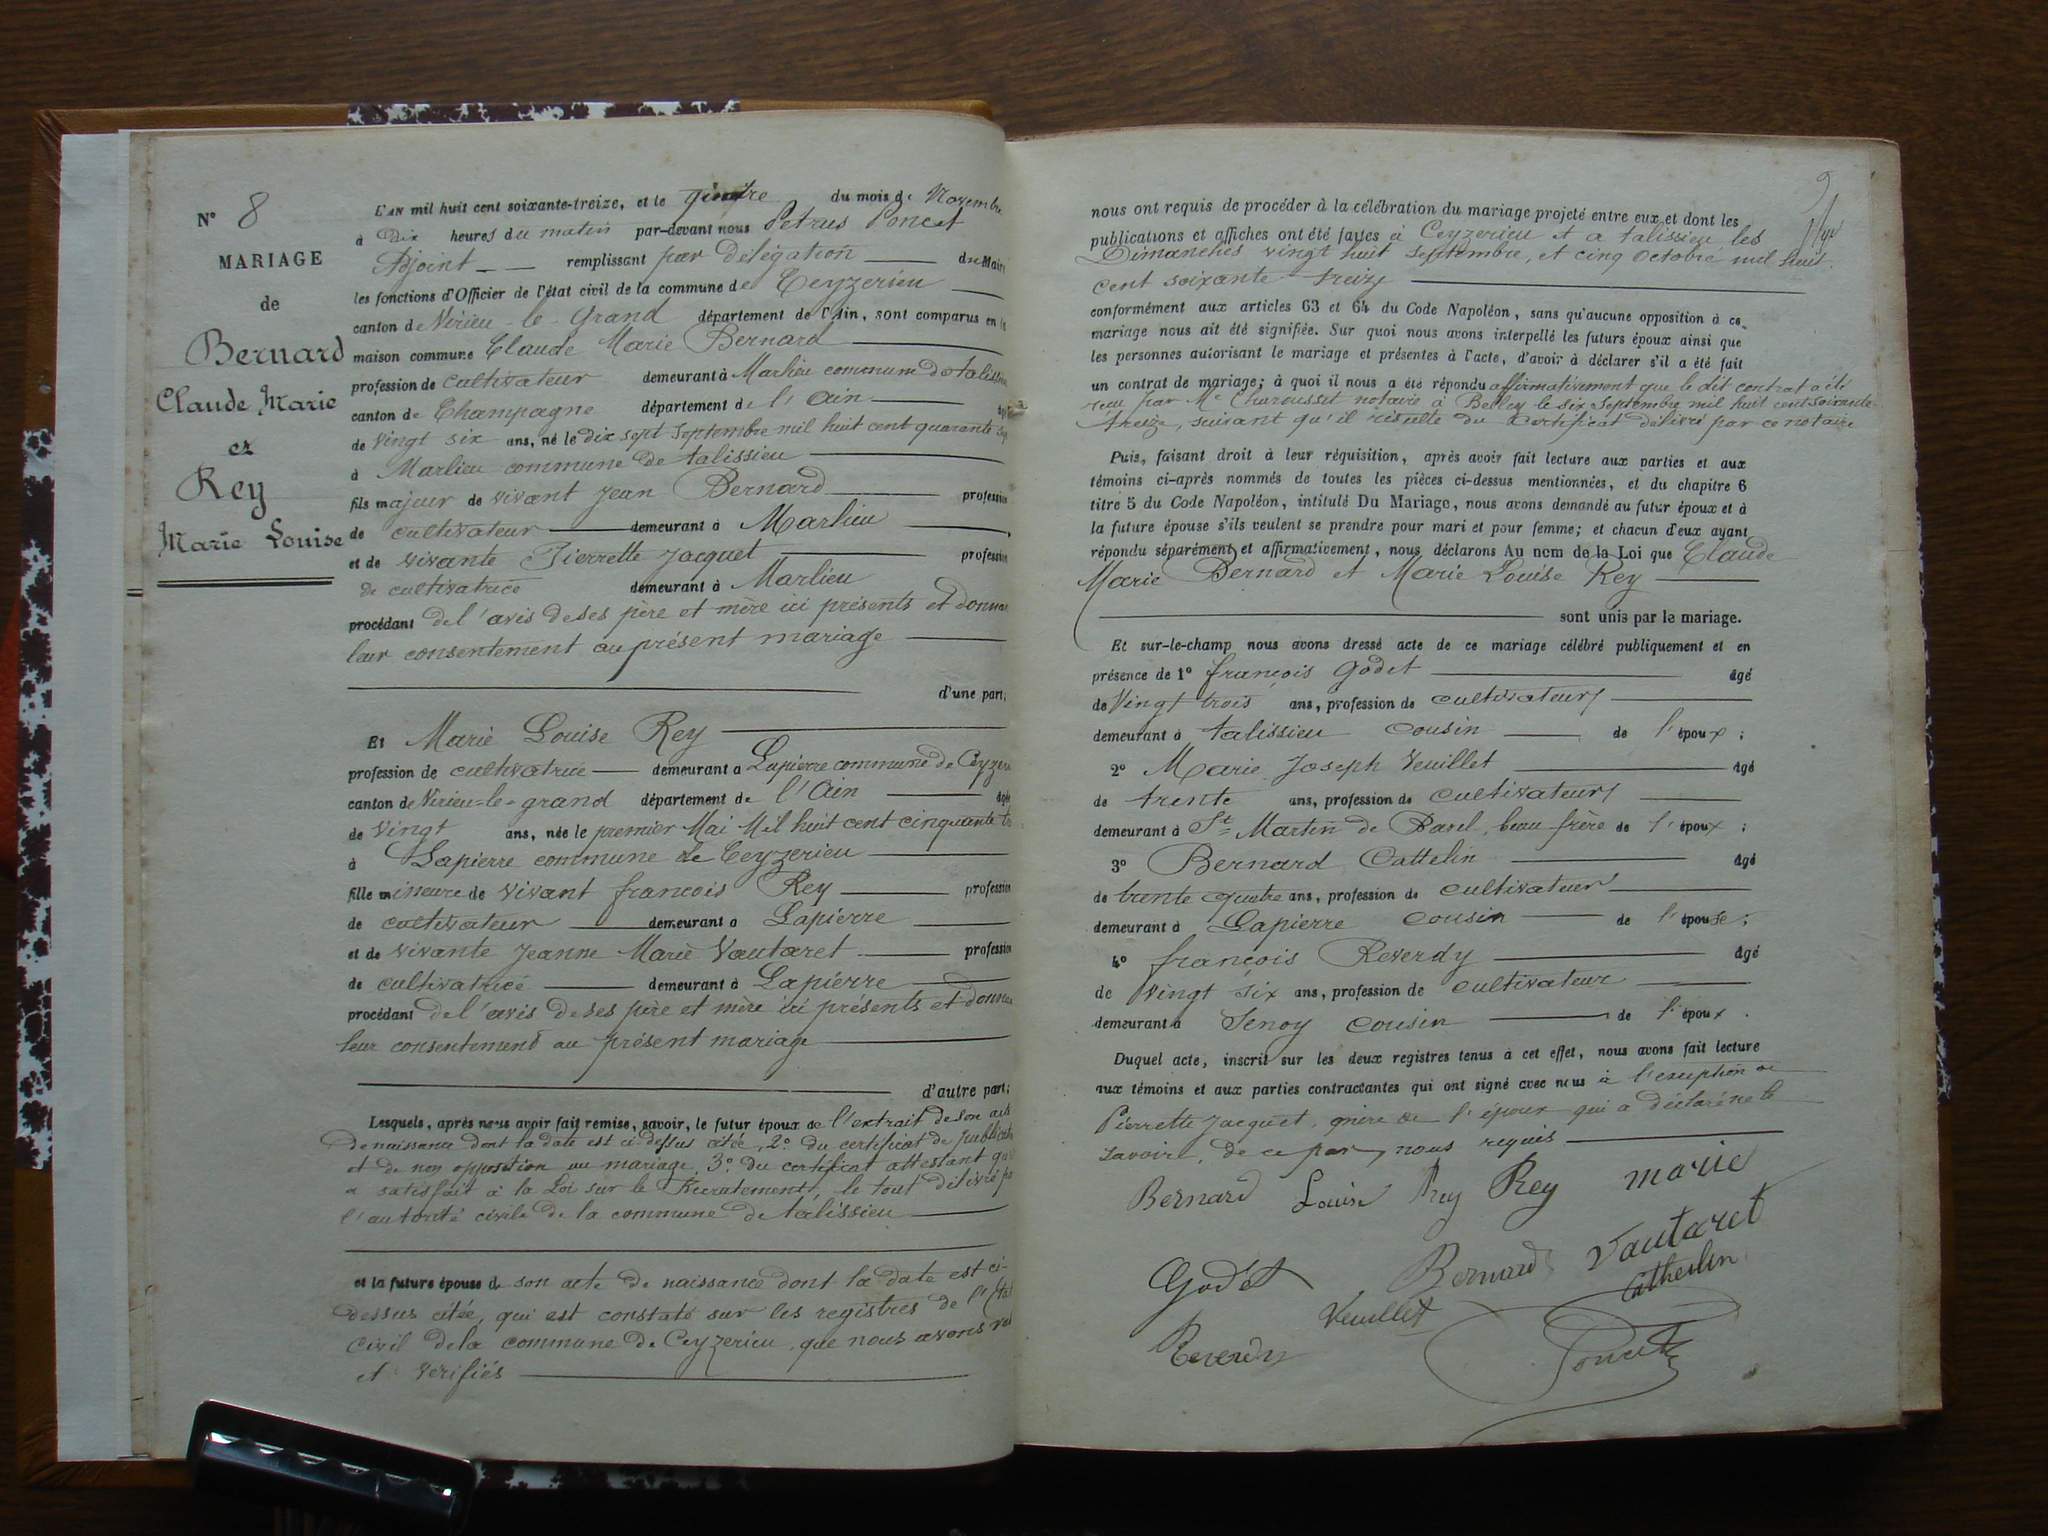 N° 8
MARIAGE
de
Bernard
Claude Marie
et
Rey
Marie Louise
L'AN mil huit cent soixante-treize, et le du mois de Novembre
à Dix heures du matin par-devant nous Petrus Poncet
Adjoint remplissant par Délégation du Maire
les fonctions d'Officier de l'état civil de la commune de Ceyzerieu
canton de Virieu-le-Grand département de l'Ain, sont comparus en la
maison commune Claude Marie Bernard
profession de cultivateur demeurant à Marlieu commune de talissieu
canton de Champagne département de l'Ain
de vingt six ans, né le dix sept Septembre mil huit cent quarante
à Marlieu commune de talissieu
fils majeur de vivant Jean Bernard profession
de cultivateur demeurant à Marlieu
et de vivante Pierrette Jacquet profession
de cultivatrice demeurant à Marlieu
procédant de l'avis de ses père et mère ici présents et donnant
leur consentement au présent mariage
d'une part;
Et Marie Louise Rey
profession de cultivatrice demeurant à Lapierre commune de Ceyzer
canton de Virieu-le-grand département de l'Ain âgée
de vingt ans, née le premier Mai Mil huit cent cinquante
à Lapierre commune de Ceyzerieu
fille mineure de vivant françois Rey profession
de cultivateur demeurant à Lapierre
et de vivante Jeanne Marie Vautaret profession
de cultivatrice demeurant à Lapierre
procédant de l'avis de ses père et mère ici présents et donnant
leur consentement au présent mariage
d'autre part;
Lesquels, après nous avoir fait remise, savoir, le futur époux de l'extrait de son acte
de naissance dont la date est ci dessus citée, 2° du certificat de publicat
et de non opposition au mariage, 3° du certificat attestant qu'il
a satisfait à la Loi sur le Recrutement, le tout délivré par
l'autorité civile de la commune de talissieu
et la future épouse d son acte de naissance dont la date est ci-
dessus citée, qui est constaté sur les registres de l'état
civil de la commune de Ceyzerieu, que nous avons vus
et vérifiés
9
nous ont requis de procéder à la célébration du mariage projeté entre eux et dont les
publications et affiches ont été faites à Ceyzerieu et a talissieu les
Dimanches vingt huit Septembre, et cinq Octobre mil huit
cent soixante-treize
conformément aux articles 63 et 64 du Code Napoléon, sans qu'aucune opposition à ce
mariage nous ait été signifiée. Sur quoi nous avons interpellé les futurs époux ainsi que
les personnes autorisant le mariage et présentes à l'acte, d'avoir à déclarer s'il a été fait
un contrat de mariage; à quoi il nous a été répondu affirmativement que le dit contrat a été
reçu par Me notaire à Belley le six Septembre mil huit cent soixante-
treize, suivant qu'il résulte du certificat délivré par ce notaire
Puis, faisant droit à leur réquisition, après avoir fait lecture aux parties et aux
témoins ci-après nommés de toutes les pièces ci-dessus mentionnées, et du chapitre 6
titre 5 du Code Napoléon, intitulé Du Mariage, nous avons demandé au futur époux et à
la future épouse s'ils veulent se prendre pour mari et pour femme; et chacun d'eux ayant
répondu séparément et affirmativement, nous déclarons Au nom de la Loi que Claude
Marie Bernard et Marie Louise Rey
sont unis par le mariage.
Et sur-le-champ nous avons dressé acte de ce mariage célébré publiquement et en
présence de 1° françois Godet âgé
de Vingt trois ans, profession de cultivateur
demeurant à talissieu cousin de l'époux;
2° Marie Joseph Veuillet âgé
de trente ans, profession de cultivateur
demeurant à St Martin de Bavel, beau frère de l'époux;
3° Bernard Cattelin âgé
de trente quatre ans, profession de cultivateur
demeurant à Lapierre cousin de l'épouse;
4° françois Reverdy âgé
de vingt six ans, profession de cultivateur
demeurant à Senoy cousin de l'époux.
Duquel acte, inscrit sur les deux registres tenus à cet effet, nous avons fait lecture
aux témoins et aux parties contractantes qui ont signé avec nous à l'exception de
Pierrette Jacquet, mère de l'époux qui a déclaré ne le
savoir, de ce par nous requis
Bernard Louise Rey Rey marie
Godet Bernard Vautaret
Veuillet Catthelin
Reverdy Poncet